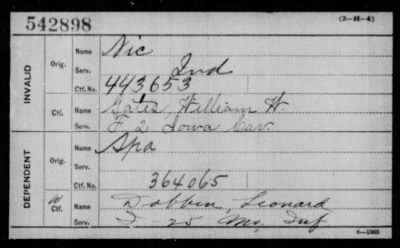 542898
(3-H-4)
INVALID
Orig.
Name Nic
Serv. Ind
Ctf. No. 443653
Ctf.
Name Gates, William W.
Serv. F 2 Iowa Cav.
DEPENDENT
Orig.
Name Spa
Serv.
Ctf. No. 364065
W
Ctf.
Name Dobbin, Leonard
Serv. 25 Mo. Inf